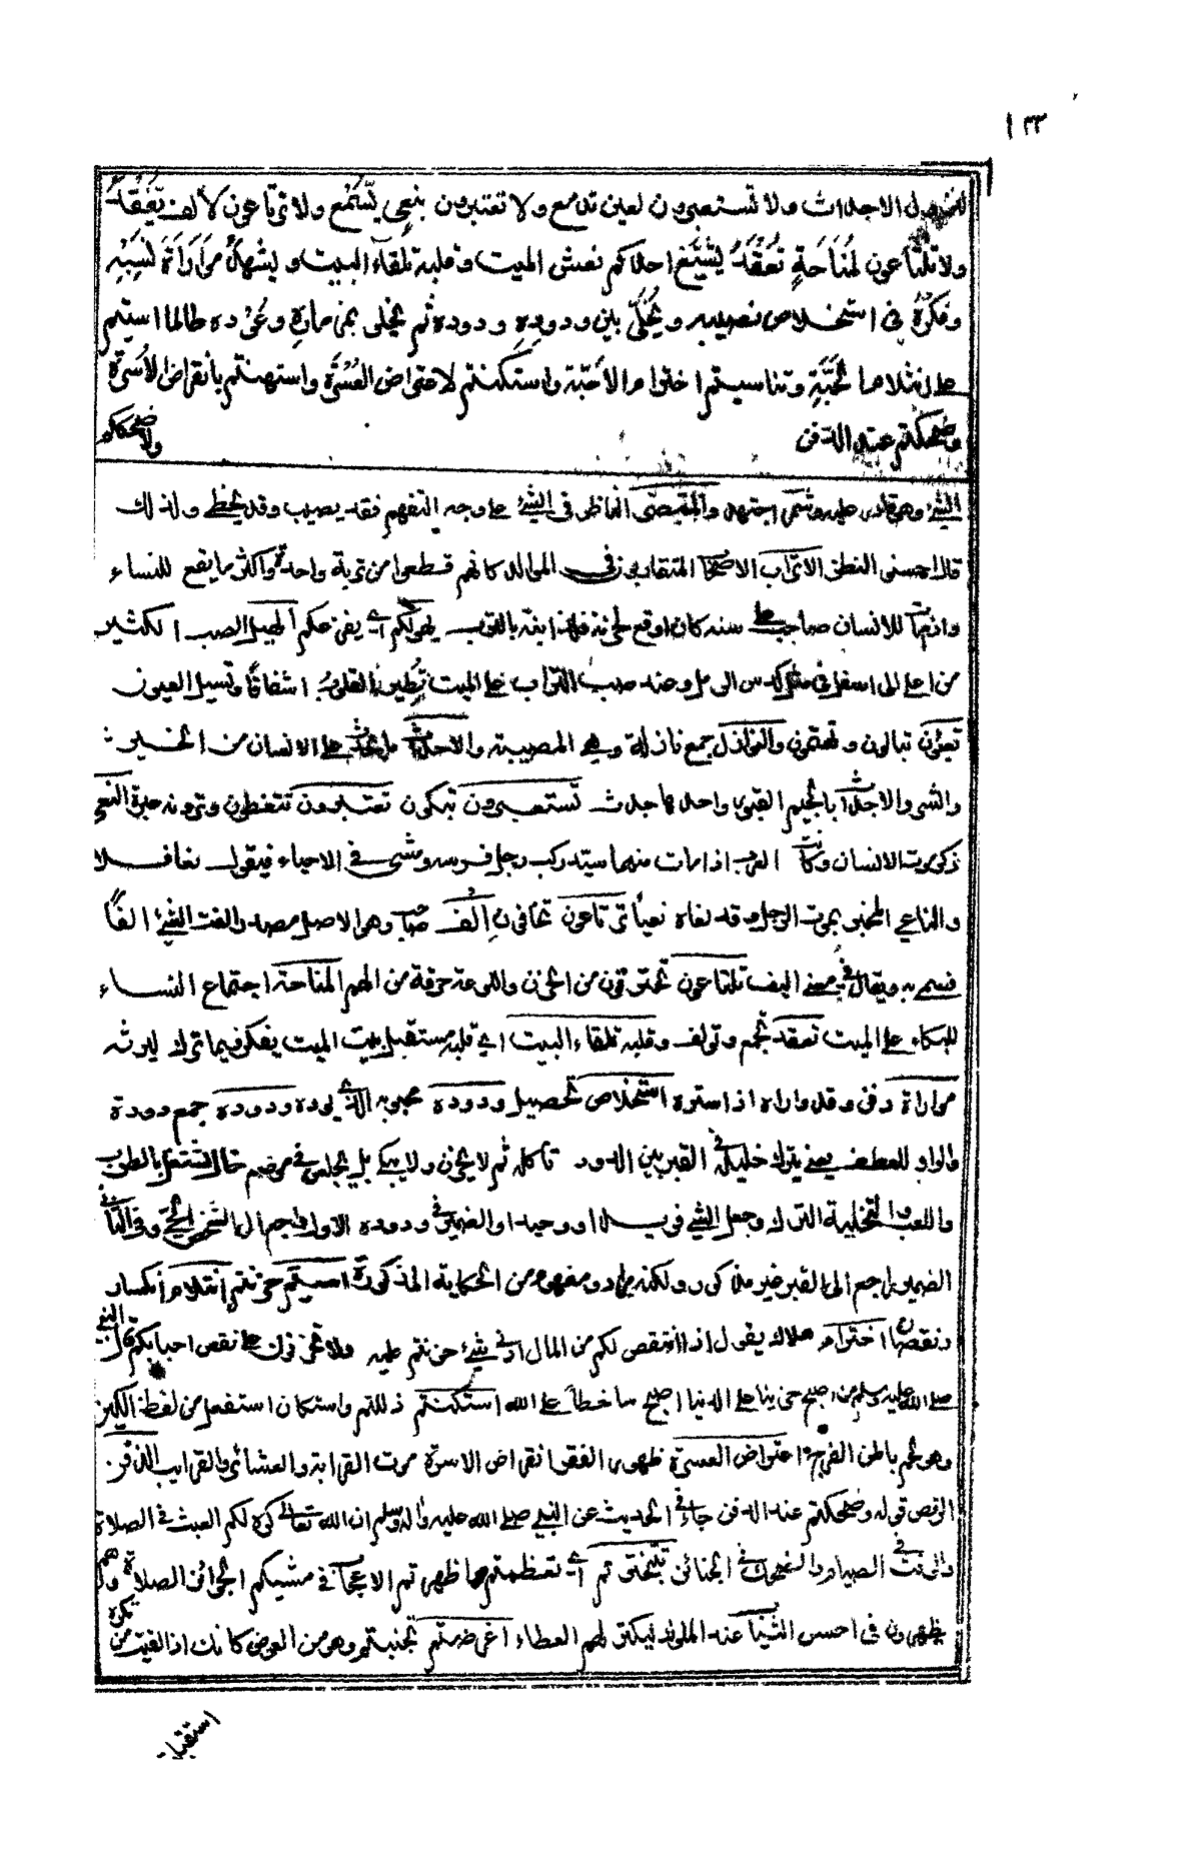 ١٣٣
لنزول الاجداث ولا تستعبرون لعين تدمع ولا تعتبرون بنعي يسمع ولا ترتاعون لألف يفقد
ولا تلتاعون لمناحة تعقد يشيع احدكم نعش الميت وقلبه تلقاء البيت ويشهد مواراة نسيبه
وفكره في استخلاص نصيبه ويخلي بين ودوده ودوده ثم يخلى بمزماره وعوده طالما اسيتم
على انثلام الحبة وتناسيتم اخترام الأحبة واستكنتم لاعتراض العسرة واستهنتم بانقراض الأسرة
وضحكتم عند الدفن
ولا ضحككم
الشيء وهو قادر عليه وسمي مجتهد والمقصى الناظر في الشيء على وجه التفهم فقد يصيب وقد يخطى ولذلك
قال احسنى النطق الاتراب الاصحاب المتقاربون في الموالد كانهم قطعوا من تربة واحدة واكثر ما يقع للنساء
للانسان صاحب على سنه كان اوقع لحزنه يهولكم اي يفزعكم الهيل الصب الكثير
من اعلى الى اسفل في الرمل وعند صب التراب على الميت تطير القلوب اشفاقا وتسيل العيون
تعبؤن تبالون وتهتمون والنوازل جمع نازلة وهي المصيبة والاحداث ما يحدث على الانسان من الخير
والشر والاجداث بالجيم القبور واحدها جدث تستعبرون تبكون تعتبرون تتفطن وترونه عبرة النعي
ذكر موت الانسان وكانت العرب اذا مات منها سيد ركب رجل فرسه ومشى في الاحياء فيقول نعاء فلانا
والناعي المخبر بموت الرجل وقد نعاه نعيا ترتاعون تخافون الف صاحب وهو الاصل مصدر الفت الشيء الفا
فسمى به ويقال في معنى اليف تلتاعون تحترقون من الحزن واللوعة حرقة من الهم المناحة اجتماع النساء
للبكاء على الميت تعقد تجمع وتولف وقلبه تلقاء البيت اي قلبه مستقبل بيت الميت يفكر فيما ترك ليرثه
مواراة دفن وقد واراه اذا ستره استخلاص تحصيل ودوده محبوبه الذي يوده ودوده جمع دودة
والواو للعطف يعني يترك خليله في القبر بين الدود تاكله ثم لا يحزن ولا يبكي بل يجلس في موضع خال اشتغل بالطرب
واللعب والتخلية الترك وجعل الشيء في وحيدا والضمير في ودوده الاول راجع الى الشخص الحي وفي الثاني
الضمير راجع الى القبر غير مذكور ولكنه مفهوم من الحكاية المذكورة اسيتم حزنتم انثلام انكسار
ونقصان اخترام هلاك يقول اذا انتقص لكم من المال ادنى شيء حزنتم عليه ولا تحزنون على نقص احبابكم قال النبي
صلى الله عليه وسلم من اصبح حزينا على الدنيا اصبح ساخطا على الله استكنتم ذللتم واستكان استفعل من لفظ الكين
وهو لحم باطن الفرج اعتراض العسرة ظهور الفقر انقراض الاسرة موت القرابة والعشائر والقرايب الدفن
الرقص قوله وضحكتم عند الدفن جاء في الحديث عن النبي صلى الله عليه واله وسلم ان الله تعالى كره لكم العبث في الصلاة
والرفث في الصيام والضحك في الجنائز تبخترتم اي تعظمتم واظهرتم الاعجاب في مشيكم الجوائز الصلات وهم
يظهرون في احسن الثياب عند الملوك ليكثر لهم العطاء اعرضتم تجنبتم وهو من العرض كانك اذا لقيت من تكره
استقبا